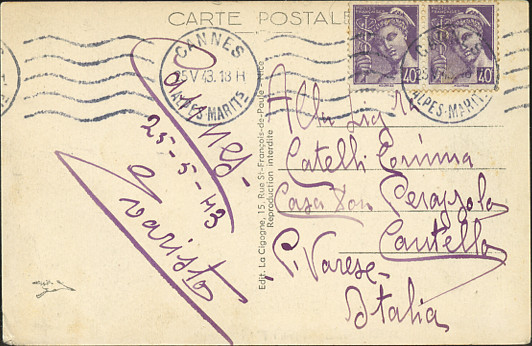 CARTE POSTALE
CANNES
25 V 43. 18 H
ALPES-MARITMES
40
40
CANNES
ALPES-MARITMES
Cannes-
25-5-43
Evaristo
Edit. La Cigogne, 15, Rue St-François-de-Paule - Nice
Reproduction interdite
Alla Sig
Catelli Corinna
Casa Don Perazzolo
Cantello
P. Varese-
Italia